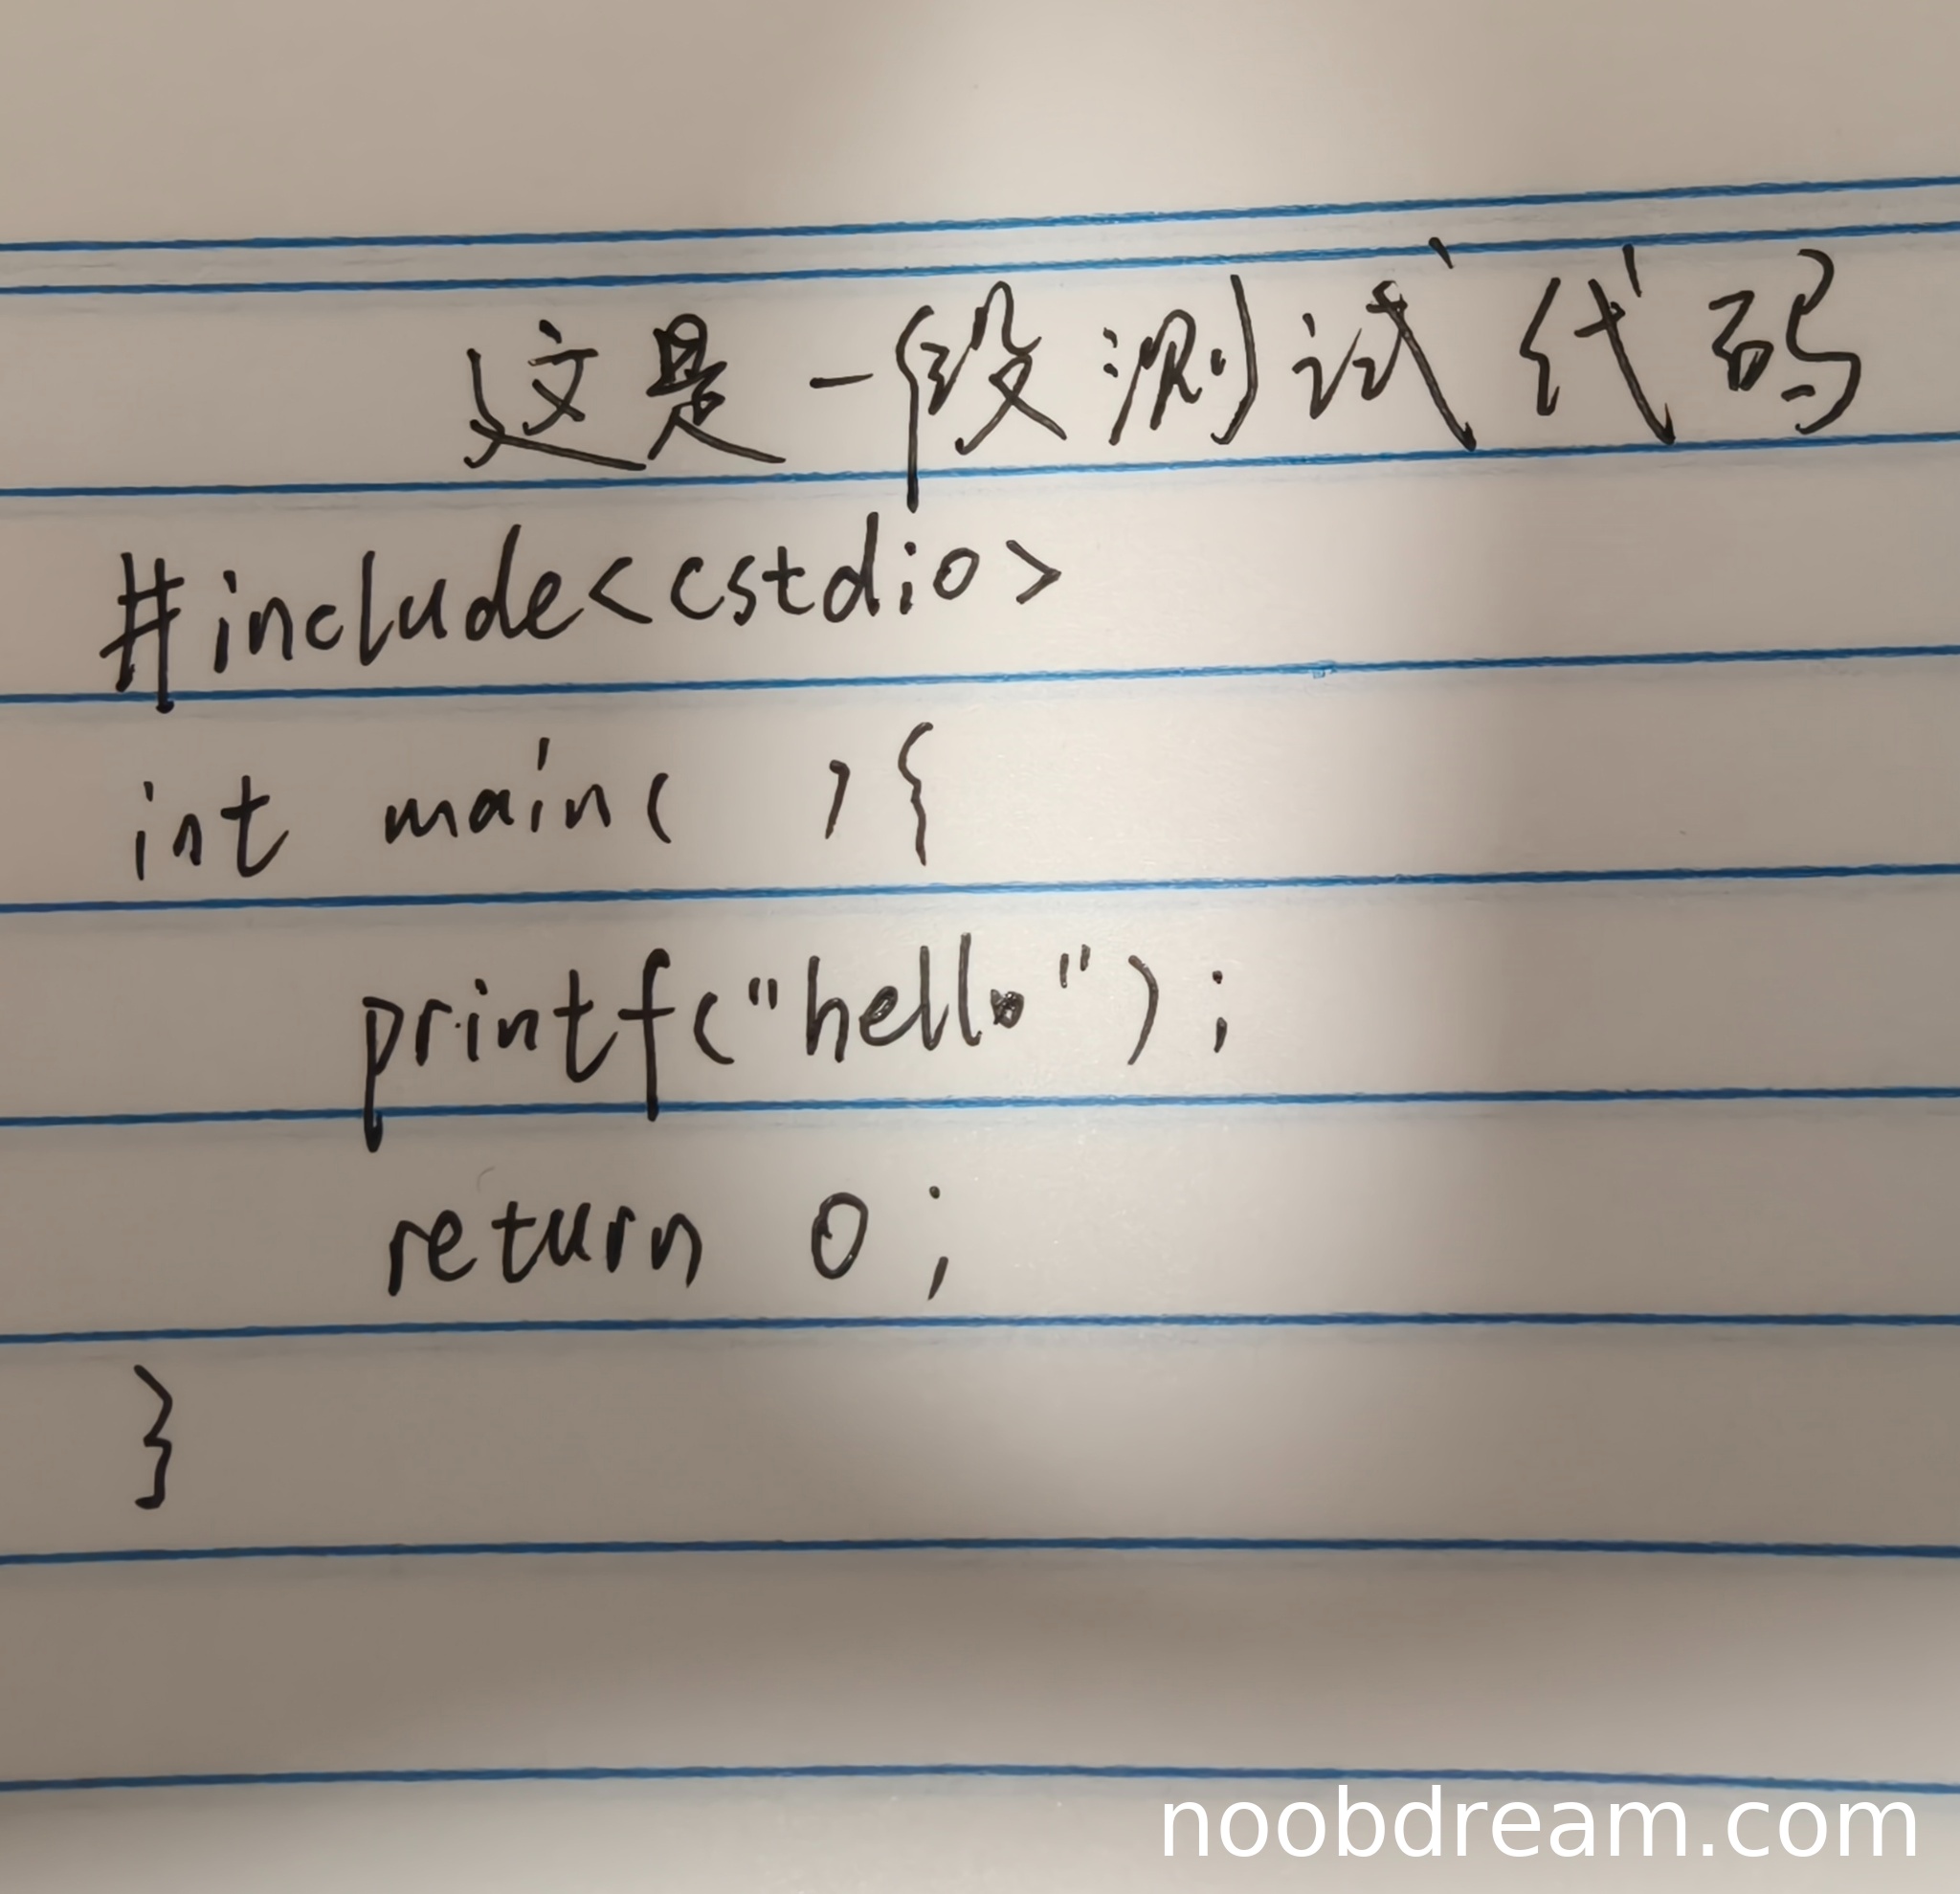 这是一段测试代码
#include<cstdio>
int main( ){
printf("hello");
return 0;
}
noobdream.com